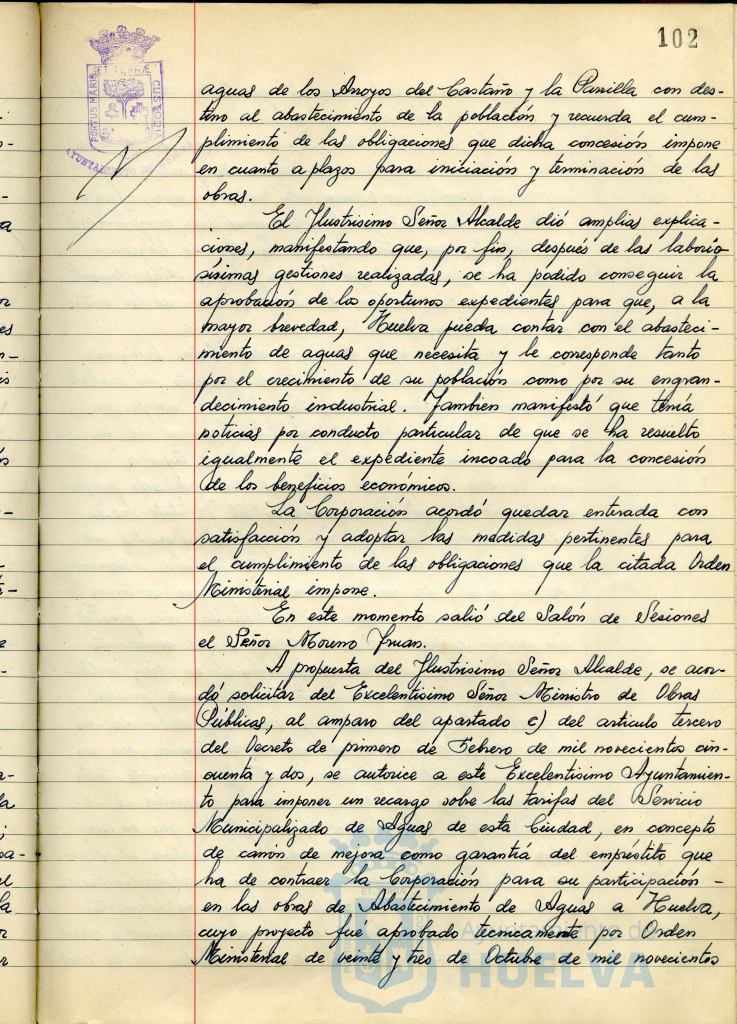 102
PORTUS MARIS
aguas de los Arroyos del Castaño y la Parrilla con des-
tino al abastecimiento de la población y recuerda el cum-
plimiento de las obligaciones que dicha concesión impone
en cuanto a plazos para iniciación y terminación de las
obras.
El Ilustrisimo Señor Alcalde dió amplias explica-
ciones, manifestando que, por fin, después de las laborio
sísimas gestiones realizadas, se ha podido conseguir la
aprobación de los oportunos expedientes para que, a la
mayor brevedad, Huelva pueda contar con el abasteci-
miento de aguas que necesita y le corresponde tanto
por el crecimiento de su población como por su engran-
decimiento industrial. Tambien manifestó que tenía
noticias por conducto particular de que se ha resuelto
igualmente el expediente incoado para la concesión
de los beneficios económicos.
La Corporación acordó quedar enterada con
satisfacción y adoptar las medidas pertinentes para
el cumplimiento de las obligaciones que la citada Orden
Ministerial impone.
En este momento salió del Salón de Sesiones
el Señor Moreno Juan.
A propuesta del Ilustrisimo Señor Alcalde, se acor-
dó solicitar del Excelentisimo Señor Ministro de Obras
Públicas, al amparo del apartado c) del articulo tercero
del Decreto de primero de Febrero de mil novecientos cin-
cuenta y dos, se autorice a este Excelentisimo Ayuntamien-
to para imponer un recargo sobre las tarifas del Servicio
Municipalizado de Aguas de esta Ciudad, en concepto
de canón de mejora como garantiá del empréstito que
ha de contraer la Corporación para su participación -
en las obras de Abastecimiento de Aguas a Huelva,
cuyo proyecto fué aprobado tecnicamente por Orden
Ministerial de veinte y tres de Octubre de mil novecientos
Ayuntamiento de
HUELVA